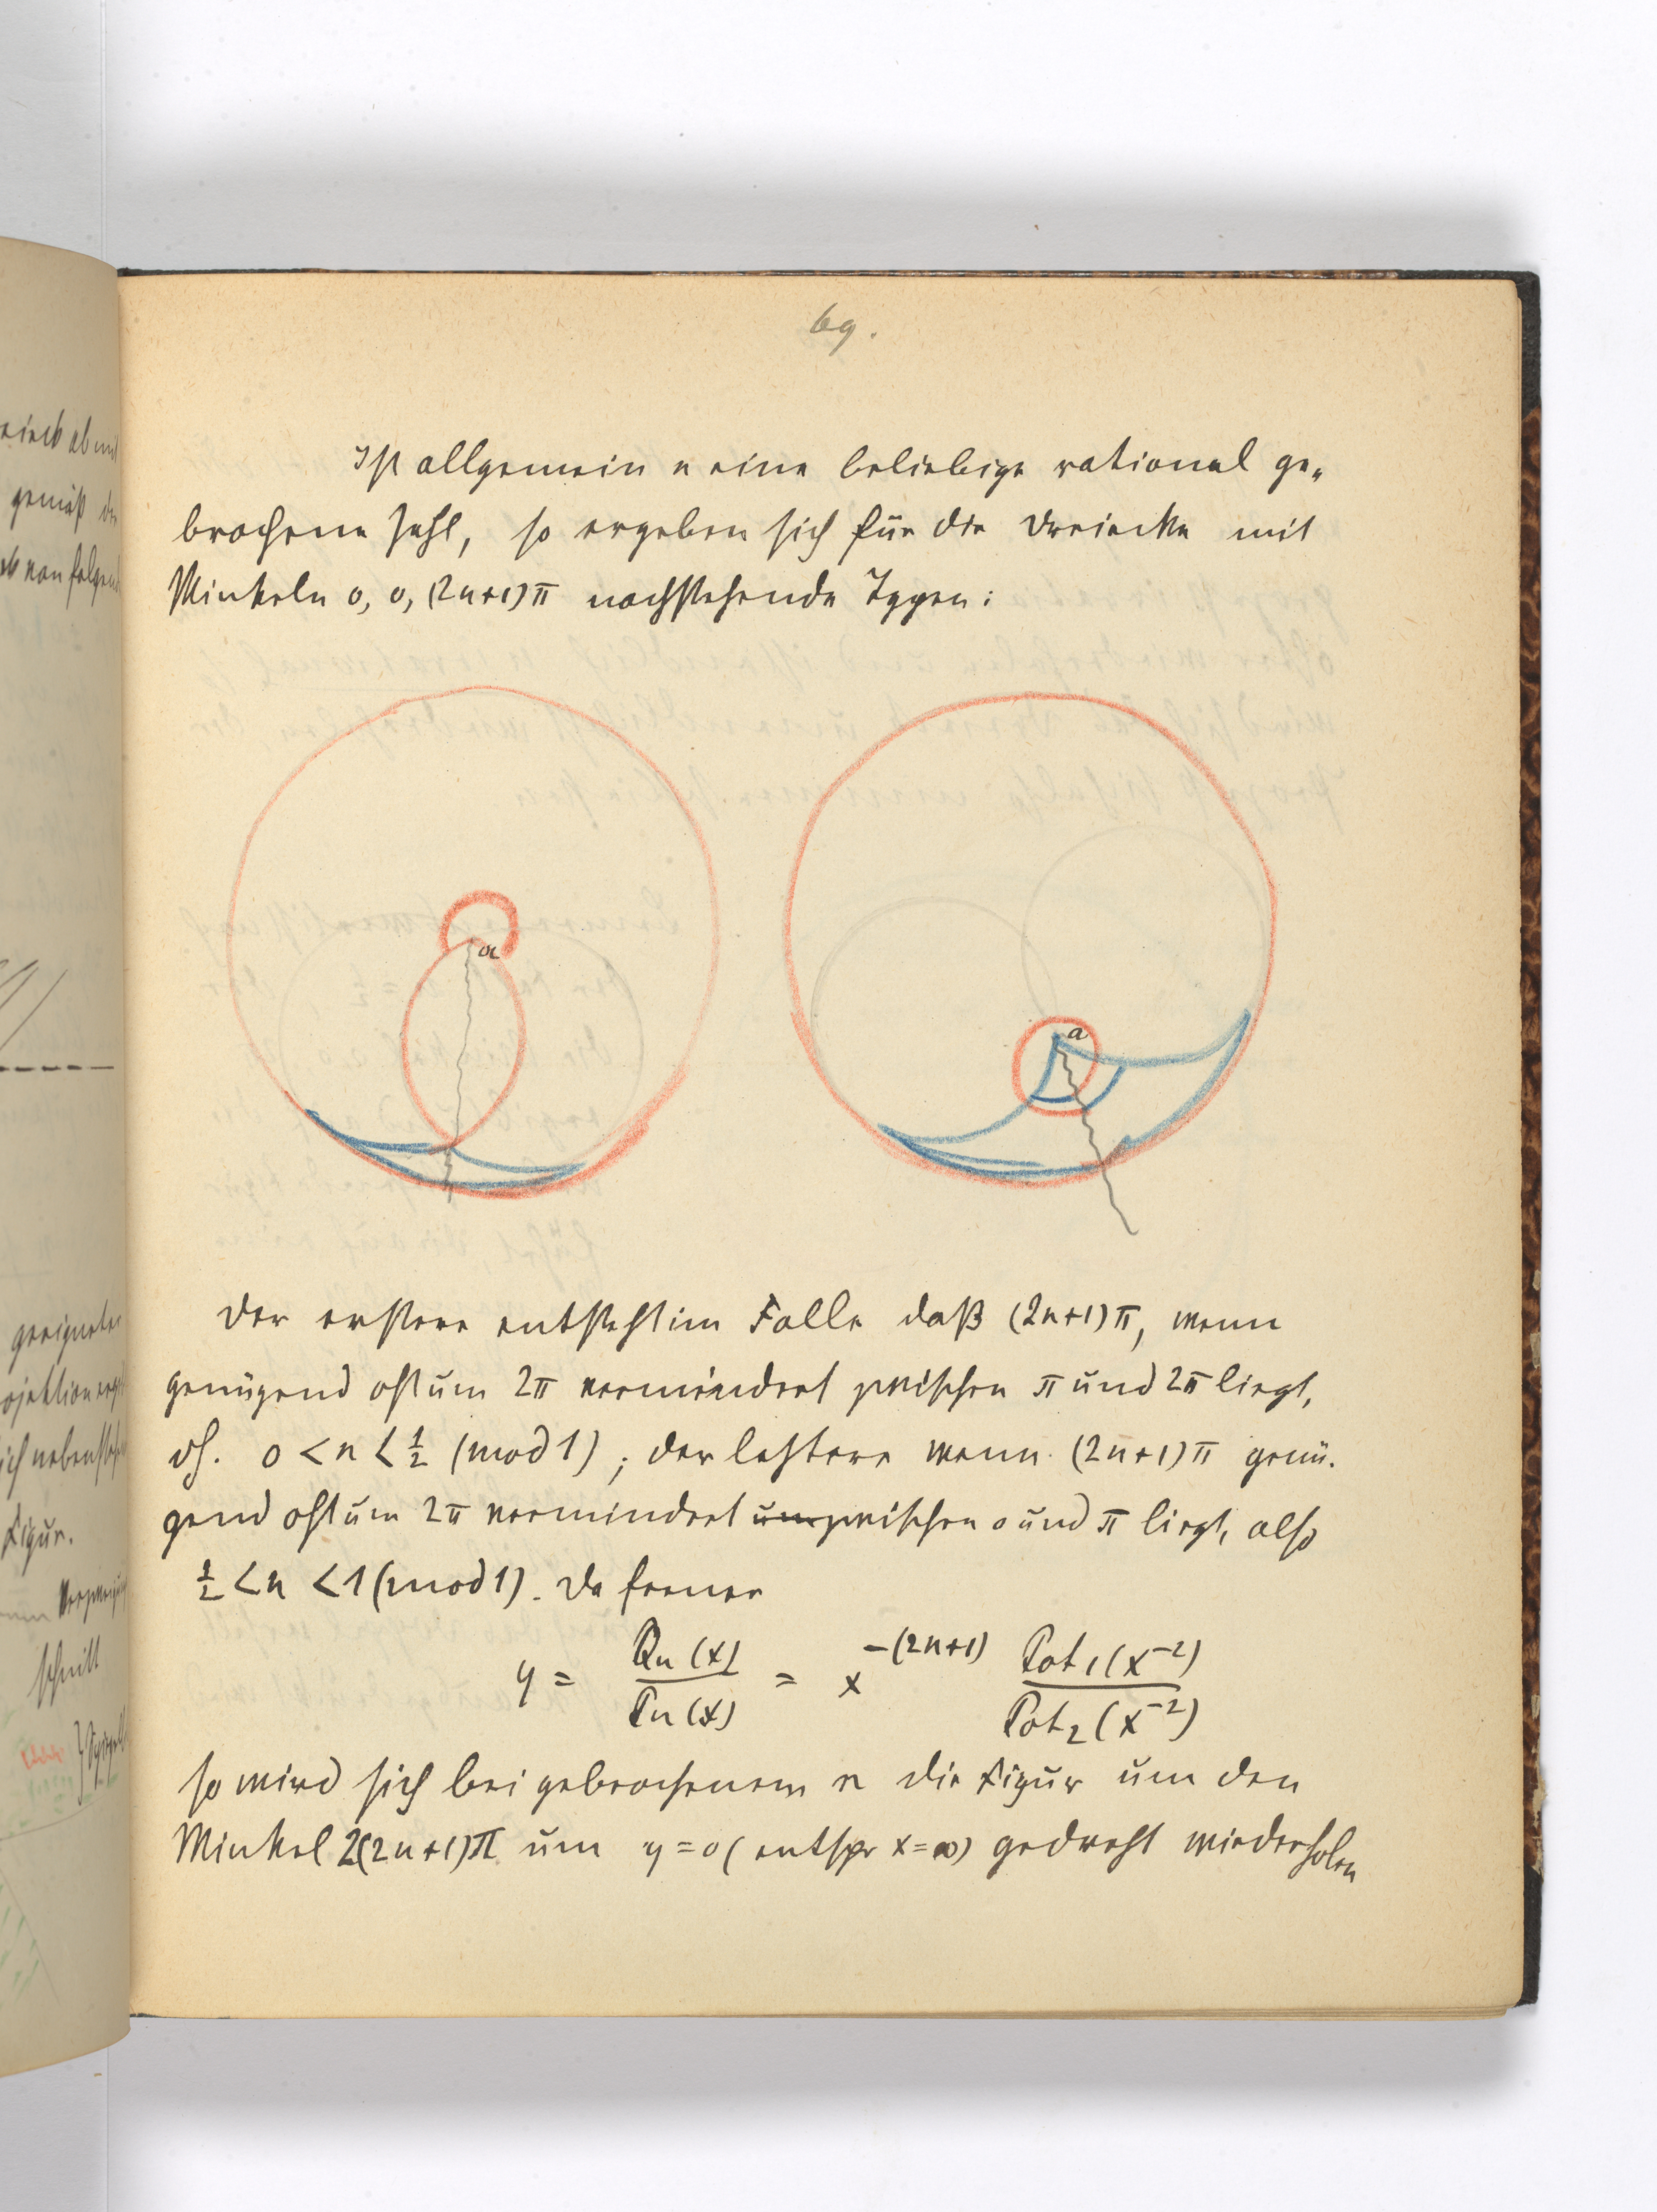 69.
Ist allgemein n eine beliebige rational ge-
brochene Zahl, so ergeben sich für die Dreiecke mit
Winkeln 0, 0, (2n+1)π nachstehende Typen:
a
a
Der erstere entsteht im Falle daß (2n+1)π, wenn
genügend oft um 2π vermindert zwischen π und 2π liegt,
dh. 0 < n < 1/2 (mod 1); der letztere wenn (2n+1)π genü-
gend oft um 2π vermindert um zwischen 0 und π liegt, also
1/2 < n < 1 (mod 1). Da ferner
y = Qn(x)/Pn(x) = x^-(2n+1) Pot1(x^-2)/Pot2(x^-2)
so wird sich bei gebrochenem n die Figur um den
Winkel 2(2n+1)π um y=0 (entspr x=∞) gedreht wiederholen
eieck ab und
gemäß
folgend
geeigneten
ojektion
ich nebensteh
Figur.
schnitt